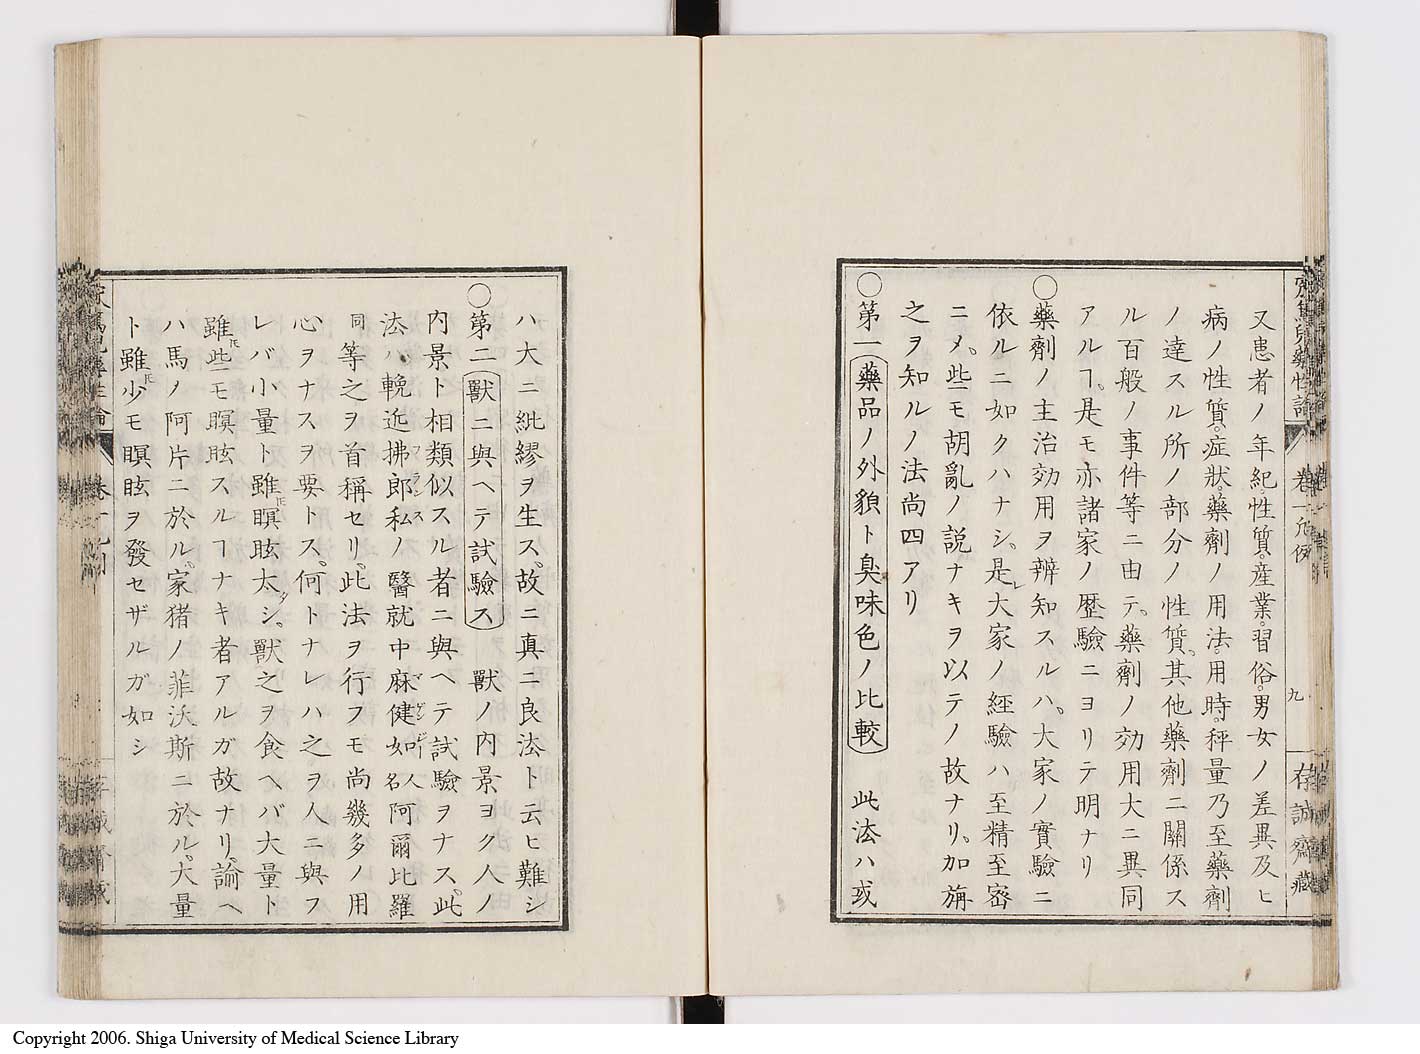 又患者ノ年紀。性質。産業。習俗。男女ノ差異及ヒ
病ノ性質。症狀。藥劑ノ用法。用時。秤量乃至藥劑
ノ達スル所ノ部分ノ性質。其他藥劑ニ關係ス
ル百般ノ事件等ニ由テ。藥劑ノ効用大ニ異同
アルヿ。是モ亦諸家ノ歷驗ニヨリテ明ナリ
〇藥劑ノ主治効用ヲ辨知スルハ。大家ノ實驗ニ
依ルニ如クハナシ。是レ大家ノ經驗ハ至精至密
ニメ。些モ胡亂ノ説ナキヲ以テノ故ナリ。加旃
之ヲ知ルノ法尚四アリ
〇第一藥品ノ外貌ト臭味色ノ比較 此法ハ或
藥性論
卷一 凡例
九
存誠齋藏
ハ大ニ紕繆ヲ生ス。故ニ真ニ良法ト云ヒ難シ
〇第二獸ニ與ヘテ試驗ス 獸ノ内景ヨク人ノ
内景ト相類似スル者ニ與ヘテ試驗ヲナス。此
法ハ輓近拂郎私ノ醫就中麻健如人名阿爾比羅
同等之ヲ首稱セリ。此法ヲ行フモ尚幾多ノ用
心ヲナスヲ要トス。何トナレハ之ヲ人ニ與フ
レバ小量ト雖𪜈瞑眩太シ。獸之ヲ食ヘバ大量ト
雖𪜈些モ瞑眩スルヿナキ者アルガ故ナリ。諭ヘ
ハ馬ノ阿片ニ於ル。家猪ノ菲沃斯ニ於ル。大量
ト雖𪜈少モ瞑眩ヲ發セザルガ如シ
Copyright 2006. Shiga University of Medical Science Library